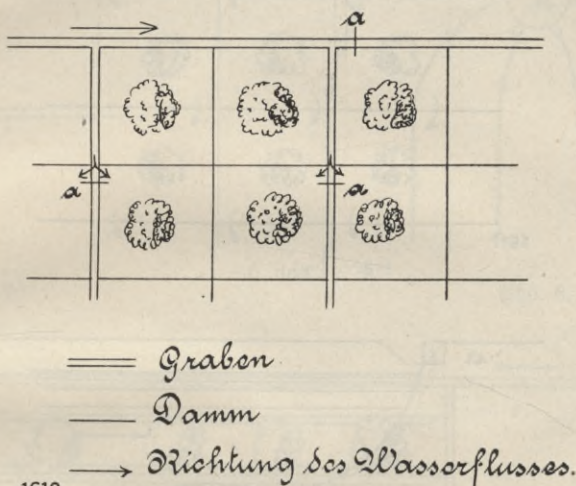 a
a
a
Graben
Damm
Richtung des Wasserflusses.
1610